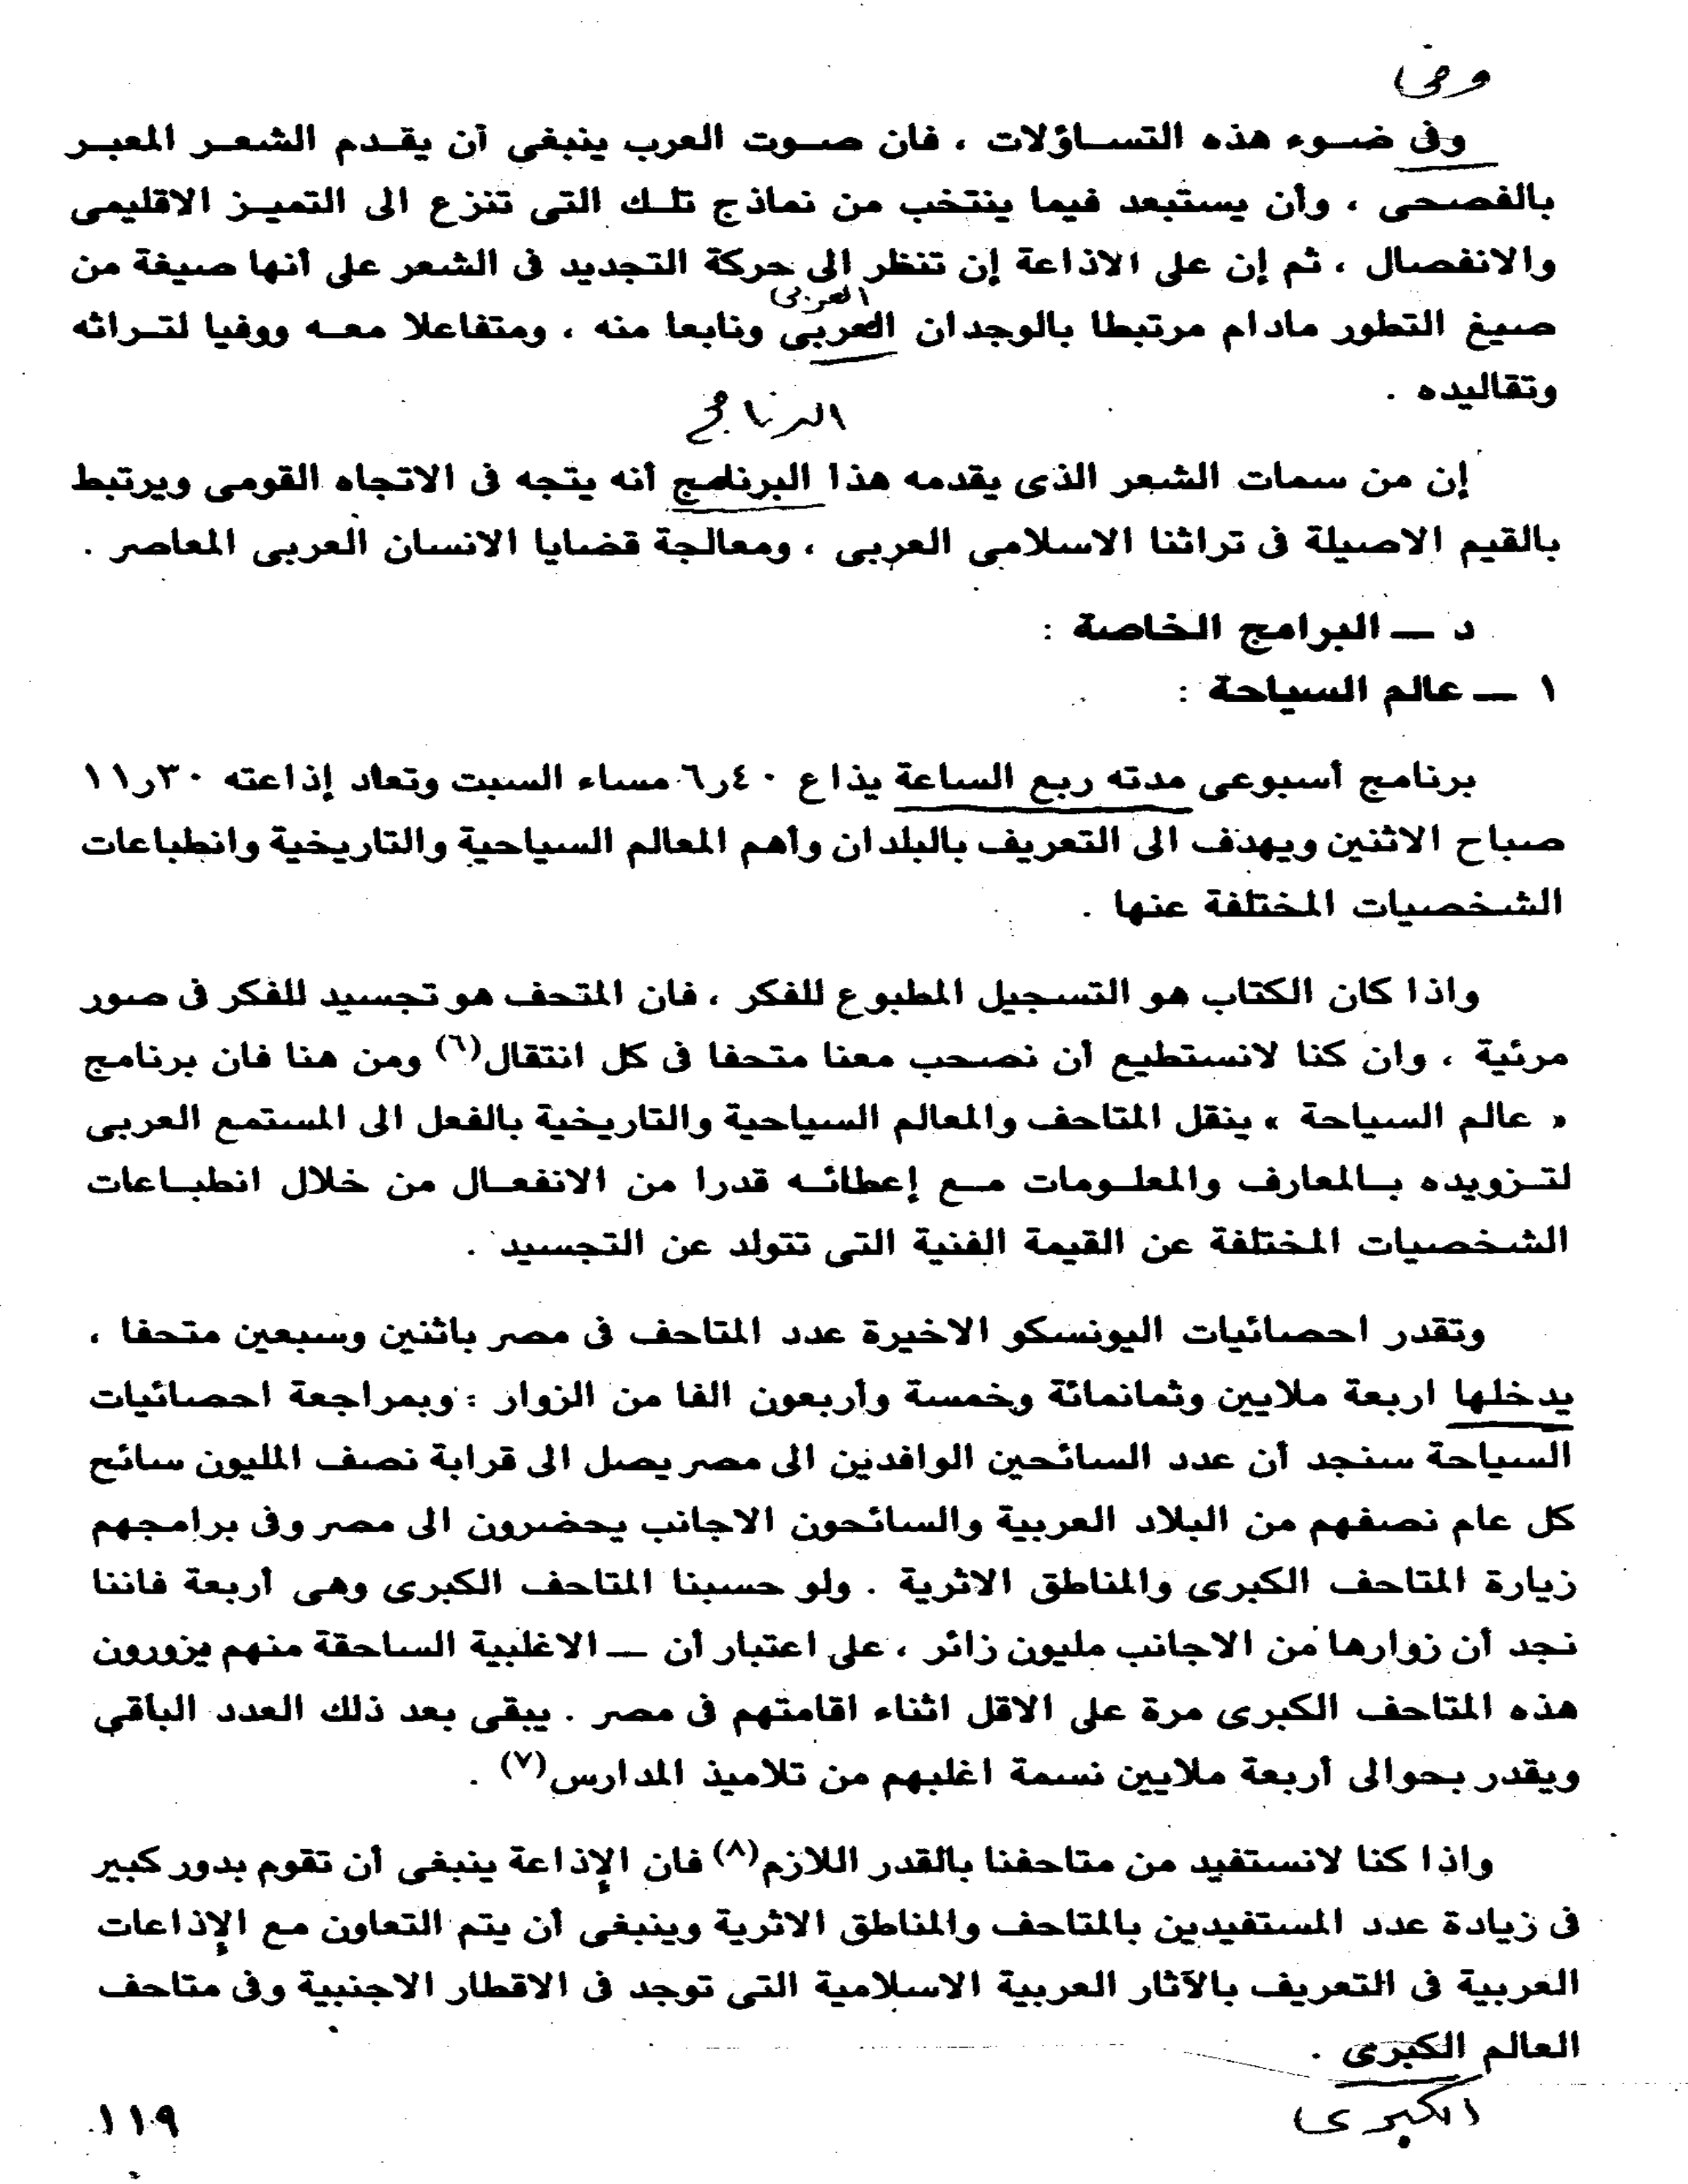 وفى
وفى ضوء هذه التساؤلات ، فان صوت العرب ينبغى أن يقدم الشعر المعبر
بالفصحى ، وأن يستبعد فيما ينتخب من نماذج تلك التى تنزع الى التميز الاقليمى
والانفصال ، ثم إن على الاذاعة إن تنظر الى حركة التجديد فى الشعر على أنها صيغة من
العربى
صيغ التطور مادام مرتبطا بالوجدان العربى ونابعا منه ، ومتفاعلا معه ووفيا لتراثه
وتقاليده .
البرنامج
إن من سمات الشعر الذى يقدمه هذا البرنامج أنه يتجه فى الاتجاه القومى ويرتبط
بالقيم الاصيلة فى تراثنا الاسلامى العربى ، ومعالجة قضايا الانسان العربى المعاصر .
د — البرامج الخاصة :
١ — عالم السياحة :
برنامج أسبوعى مدته ربع الساعة يذاع ٤٠ر٦ مساء السبت وتعاد إذاعته ٣٠ر١١
صباح الاثنين ويهدف الى التعريف بالبلدان وأهم المعالم السياحية والتاريخية وانطباعات
الشخصيات المختلفة عنها .
واذا كان الكتاب هو التسجيل المطبوع للفكر ، فان المتحف هو تجسيد للفكر فى صور
مرئية ، وان كنا لانستطيع أن نصحب معنا متحفا فى كل انتقال(٦) ومن هنا فان برنامج
« عالم السياحة » ينقل المتاحف والمعالم السياحية والتاريخية بالفعل الى المستمع العربى
لتزويده بالمعارف والمعلومات مع إعطائه قدرا من الانفعال من خلال انطباعات
الشخصيات المختلفة عن القيمة الفنية التى تتولد عن التجسيد .
وتقدر احصائيات اليونسكو الاخيرة عدد المتاحف فى مصر باثنين وسبعين متحفا ،
يدخلها اربعة ملايين وثمانمائة وخمسة وأربعون الفا من الزوار : وبمراجعة احصائيات
السياحة سنجد أن عدد السائحين الوافدين الى مصر يصل الى قرابة نصف المليون سائح
كل عام نصفهم من البلاد العربية والسائحون الاجانب يحضرون الى مصر وفى برامجهم
زيارة المتاحف الكبرى والمناطق الاثرية . ولو حسبنا المتاحف الكبرى وهى أربعة فاننا
نجد أن زوارها من الاجانب مليون زائر ، على اعتبار أن — الاغلبية الساحقة منهم يزورون
هذه المتاحف الكبرى مرة على الاقل اثناء اقامتهم فى مصر . يبقى بعد ذلك العدد الباقي
ويقدر بحوالى أربعة ملايين نسمة اغلبهم من تلاميذ المدارس(٧) .
واذا كنا لانستفيد من متاحفنا بالقدر اللازم(٨) فان الإذاعة ينبغى أن تقوم بدور كبير
فى زيادة عدد المستفيدين بالمتاحف والمناطق الاثرية وينبغى أن يتم التعاون مع الإذاعات
العربية فى التعريف بالآثار العربية الاسلامية التى توجد فى الاقطار الاجنبية وفى متاحف
العالم الكبرى .
الكبرى
١١٩